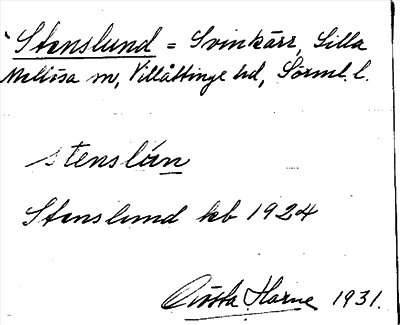 Stenslund = Svinkärr, Lilla
Mellösa sn, Villåttinge hd, Sörml. l.
stenslún
Stenslund kb 1924
Gösta Harne 1931.